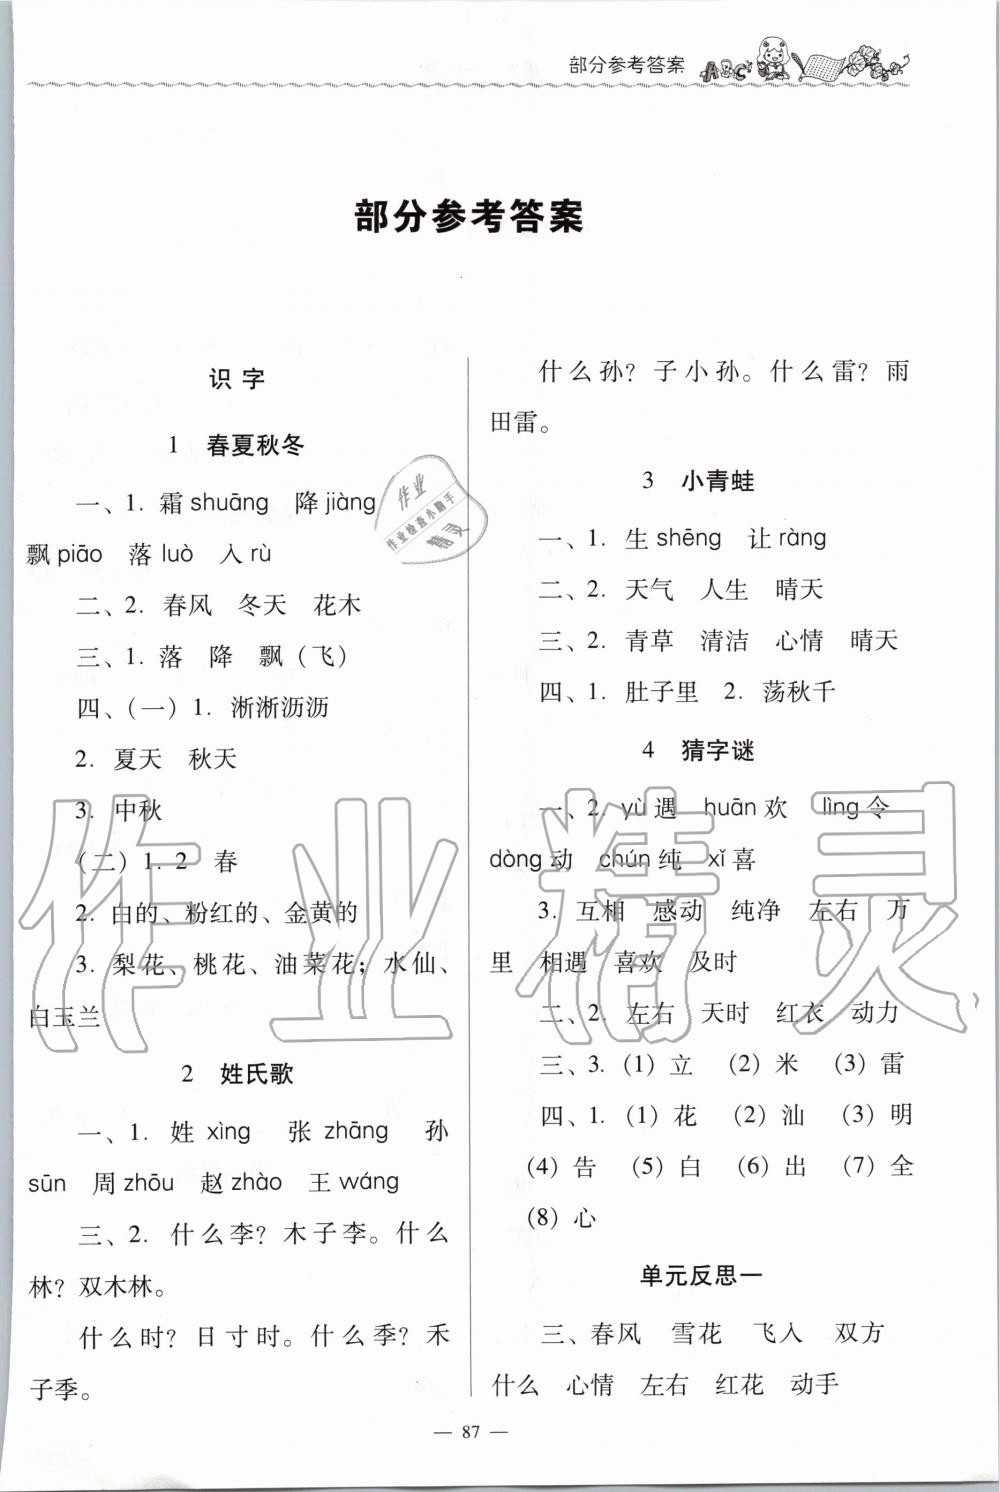 部分参考答案
ABC
部分参考答案
识字
1 春夏秋冬
一、1. 霜 shuāng 降 jiàng
飘 piāo 落 luò 入 rù
二、2. 春风 冬天 花木
三、1. 落 降 飘（飞）
四、（一）1. 淅淅沥沥
2. 夏天 秋天
3. 中秋
（二）1. 2 春
2. 白的、粉红的、金黄的
3. 梨花、桃花、油菜花；水仙、
白玉兰
2 姓氏歌
一、1. 姓 xìng 张 zhāng 孙
sūn 周 zhōu 赵 zhào 王 wáng
三、2. 什么李？木子李。什么
林？双木林。
什么时？日寸时。什么季？禾
子季。
什么孙？子小孙。什么雷？雨
田雷。
3 小青蛙
一、1. 生 shēng 让 ràng
二、2. 天气 人生 晴天
三、2. 青草 清洁 心情 晴天
四、1. 肚子里 2. 荡秋千
4 猜字谜
一、2. yù 遇 huān 欢 lìng 令
dòng 动 chún 纯 xǐ 喜
3. 互相 感动 纯净 左右 万
里 相遇 喜欢 及时
二、2. 左右 天时 红衣 动力
三、3. (1) 立 (2) 米 (3) 雷
四、1. (1) 花 (2) 汕 (3) 明
(4) 告 (5) 白 (6) 出 (7) 全
(8) 心
单元反思一
三、春风 雪花 飞入 双方
什么 心情 左右 红花 动手
— 87 —
作业
作业检查小助手
精灵
作业精灵